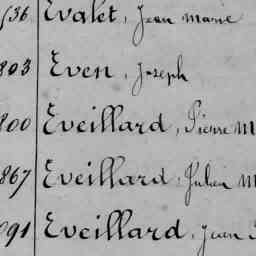 536 Evalet, Jean Marie
803 Even, Joseph
800 Eveillard, Pierre M
867 Eveillard, Julien M
091 Eveillard, Jean